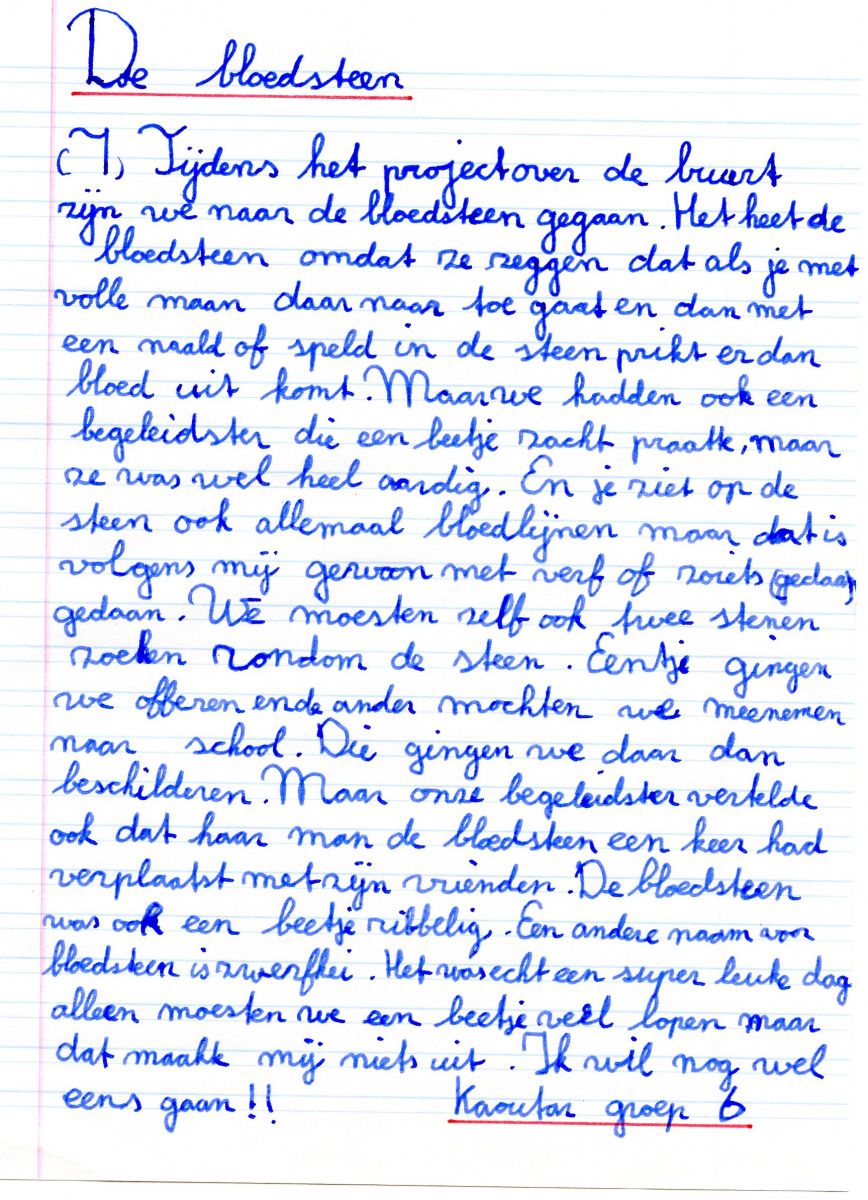 De bloedsteen
(T) Tijdens het project over de buurt
zijn we naar de bloedsteen gegaan. Het heet de
bloedsteen omdat ze zeggen dat als je met
volle maan daar naar toe gaat en dan met
een naald of speld in de steen prikt er dan
bloed uit komt. Maar we hadden ook een
begeleidster die een beetje zacht praatte, maar
ze was wel heel aardig. En je ziet op de
steen ook allemaal bloedlijnen maar dat is
volgens mij gewoon met verf of zoiets (gedaan)
gedaan. We moesten zelf ook twee stenen
zoeken rondom de steen. Eentje gingen
we offeren en de ander mochten we meenemen
naar school. Die gingen we daar dan
beschilderen. Maar onze begeleidster vertelde
ook dat haar man de bloedsteen een keer had
verplaatst met zijn vrienden. De bloedsteen
was ook een beetje ribbelig. Een andere naam voor
bloedsteen is zwerfkei. Het was echt een super leuke dag
alleen moesten we een beetje veel lopen maar
dat maakte mij niets uit. Ik wil nog wel
eens gaan!! Kaoutar groep 6